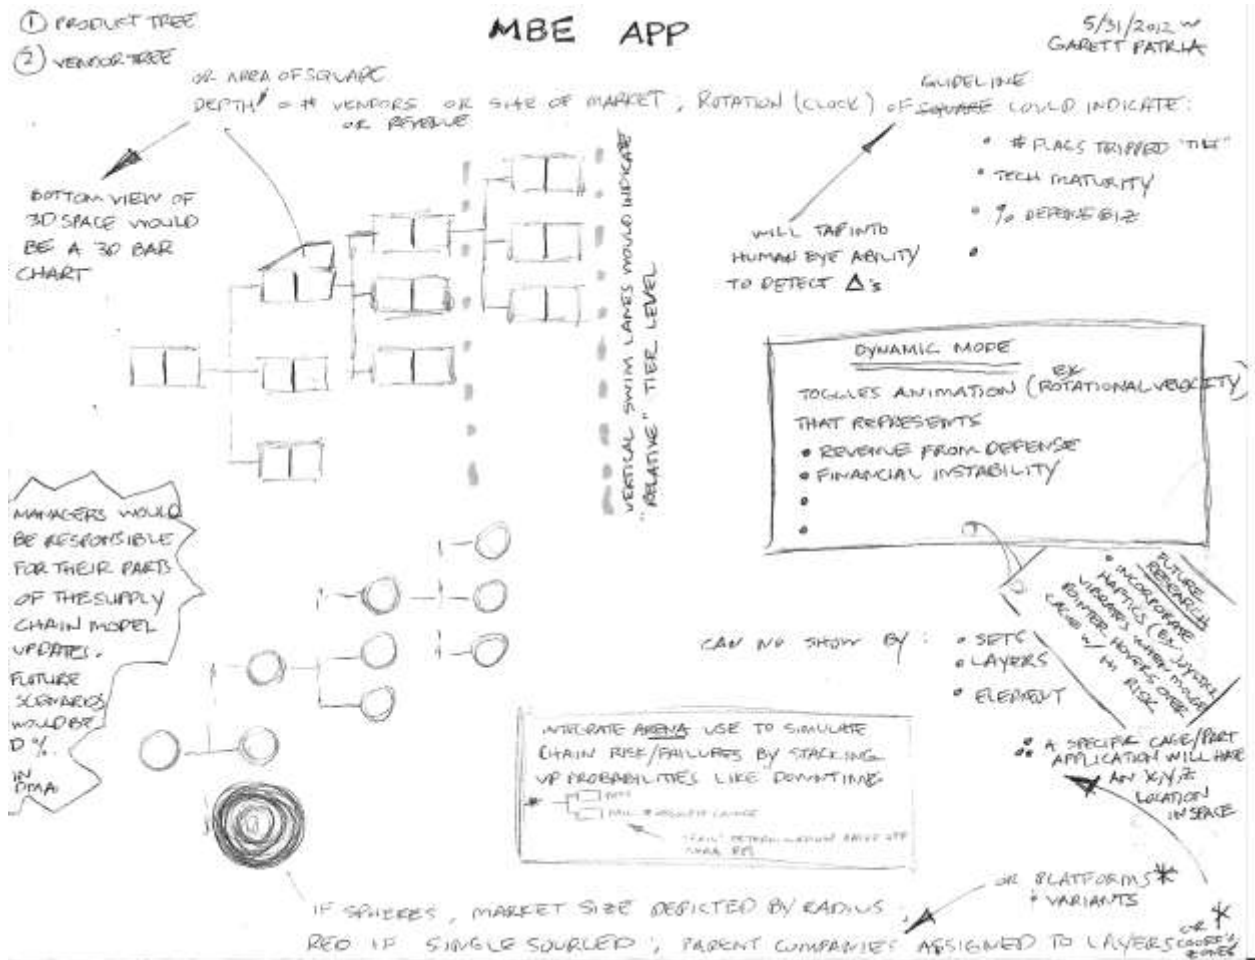 ① PRODUCT TREE
② VENDOR TREE
MBE APP
5/31/2012
GARETT PATRIA
OR AREA OF SQUARE
DEPTH = # VENDORS OR SIZE OF MARKET; ROTATION (CLOCK) OF SQUARE COULD INDICATE:
OR REVENUE
GUIDELINE
• # FLAGS TRIPPED "TILT"
• TECH MATURITY
• % DEFENSE BIZ
•
BOTTOM VIEW OF
3D SPACE WOULD
BE A 3D BAR
CHART
WILL TAP INTO
HUMAN EYE ABILITY
TO DETECT Δ's
VERTICAL SWIM LANES WOULD INDICATE
"RELATIVE" TIER LEVEL
DYNAMIC MODE
TOGGLES ANIMATION (EX ROTATIONAL VELOCITY)
THAT REPRESENTS
• REVENUE FROM DEFENSE
• FINANCIAL INSTABILITY
•
•
MANAGERS WOULD
BE RESPONSIBLE
FOR THEIR PARTS
OF THE SUPPLY
CHAIN MODEL
UPDATES.
FUTURE
SCENARIOS
WOULD BE
IN
FUTURE
RESEARCH
• INCORPORATE
HAPTICS (EX JOYSTICK
VIBRATES WHEN MOUSE
POINTER HOVERS OVER
CAGE W/ HI RISK
SHOW BY:
• SETS
• LAYERS
• ELEMENT
INTEGRATE ARENA USE TO SIMULATE
CHAIN RISK/FAILURES BY STACKING
UP PROBABILITIES LIKE DOWNTIME
A SPECIFIC CAGE/PART
APPLICATION WILL HAVE
AN X,Y,Z
LOCATION
IN SPACE
OR PLATFORMS *
+ VARIANTS
IF SPHERES, MARKET SIZE DEPICTED BY RADIUS
RED IF SINGLE SOURCED; PARENT COMPANIES ASSIGNED TO LAYERS
*
OR
ZONES